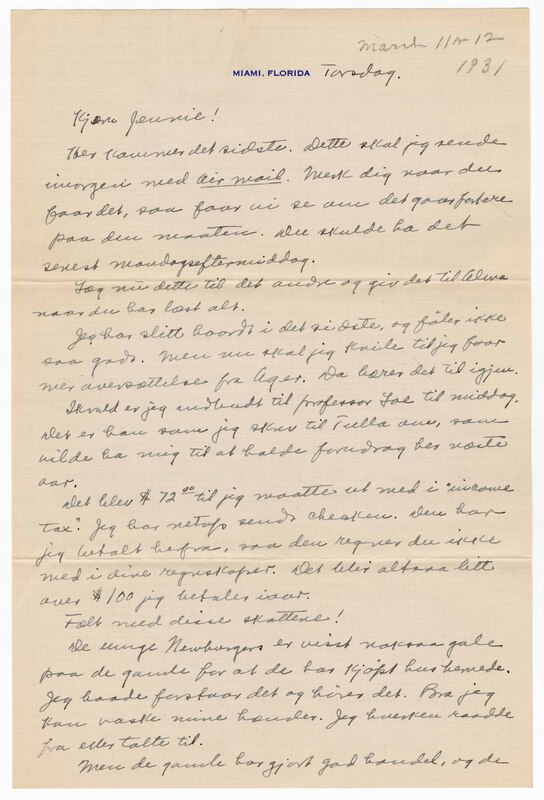 March 11 or 12
1931
MIAMI, FLORIDA Torsdag.
Kjære Jennie!
Her kommer det sidste. Dette skal jeg sende
imorgen med Air mail. Merk dig naar du
faar det, saa faar vi se om det gaar fortere
paa den maaten. Du skulde ha det
senest mandagseftermiddag.
Læg nu dette til det andre og giv det til
naar du har læst alt.
Jeg har slitt haardt i det sidste, og føler ikke
saa godt. Men nu skal jeg hvile til jeg faar
mer oversættelse fra Ager. Da bærer det til igjen.
Ikveld er jeg indbudt til professor Loe til middag.
Det er han som jeg skrev til Tulla om, som
vilde ha mig til at holde foredrag her næste
aar.
Det blev $72.00 til jeg maatte ut med i "income
tax". Jeg har netop sendt checken. Den har
jeg betalt herfra, saa den regner du ikke
med i dine regnskaper. Det blir altsaa litt
over $100 jeg betaler iaar.
Fælt med disse skattene!
De unge Newburgers er visst noksaa gale
paa de gamle for at de har kjøpt hus hernede.
Jeg baade forstaar det og hører det. Bra jeg
kan vaske mine hænder. Jeg hverken raadde
fra eller talte til.
Men de gamle har gjort god handel, og de